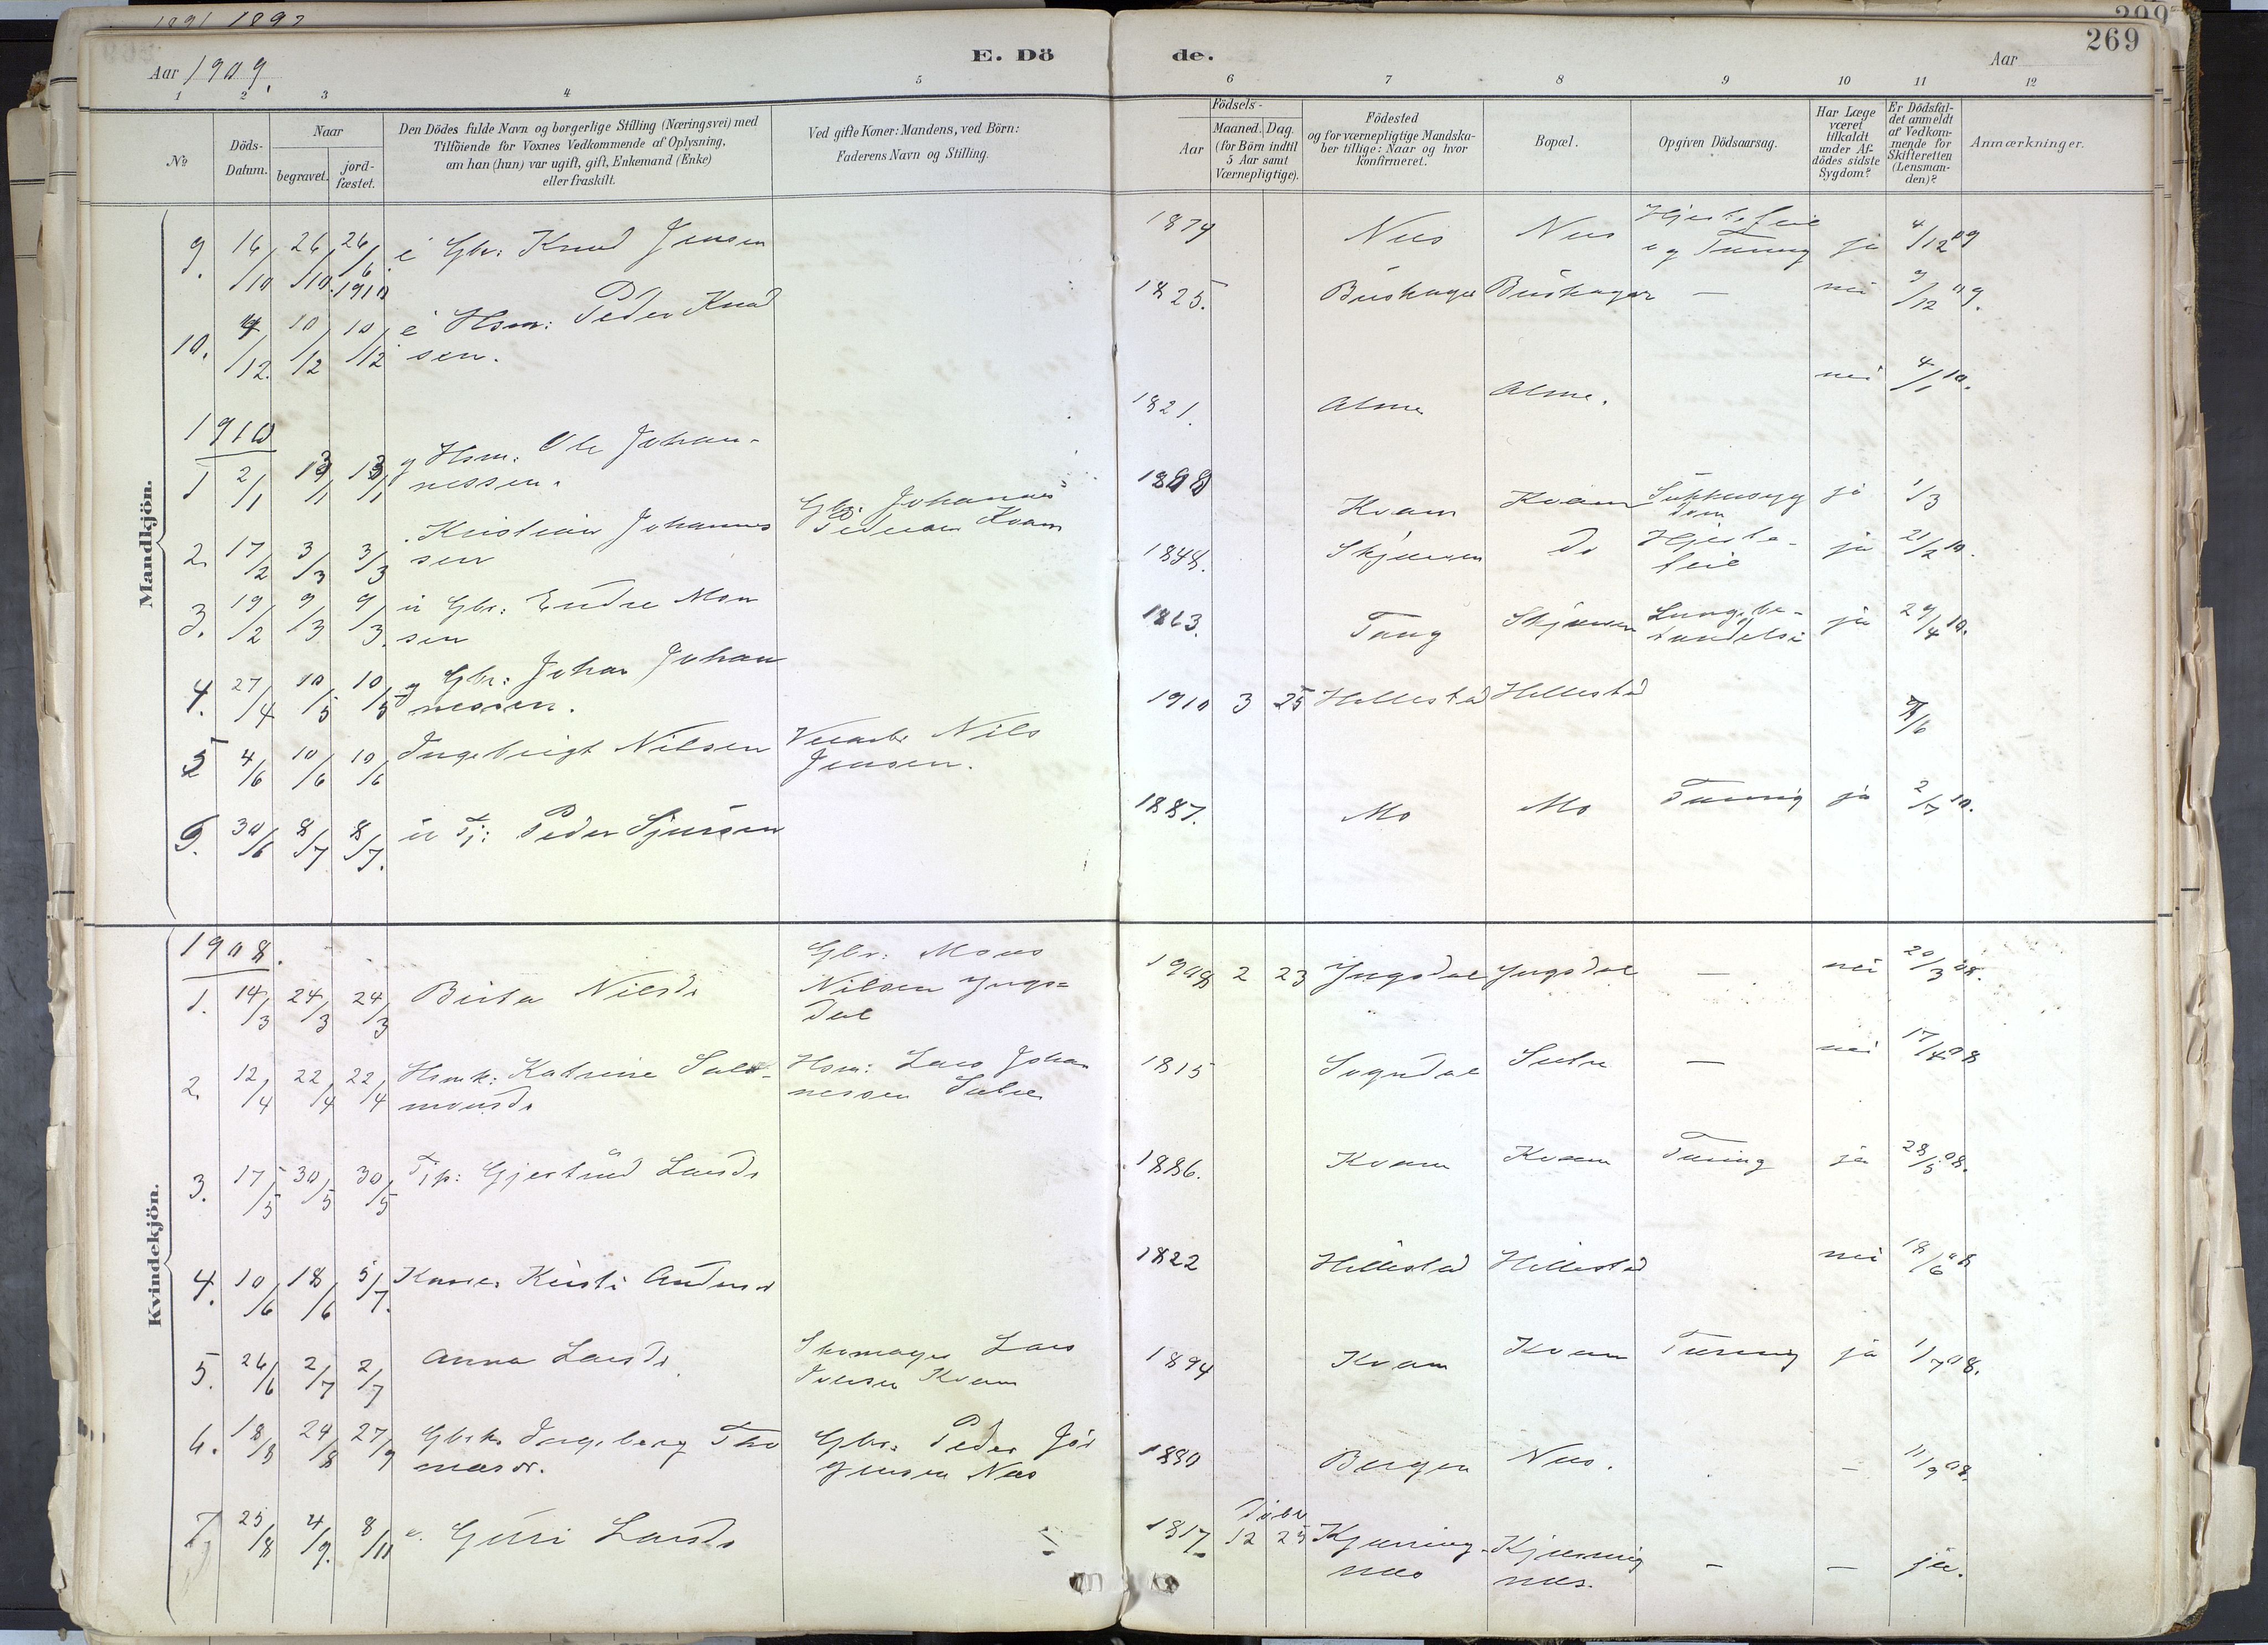 1891 1892
299
269
Aar 1909.
E. Dö
de.
Aar
1 2 3 4 5 6 7 8 9 10 11 12
No
Döds-
Datum.
Naar
begravet.
jord-
fæstet.
Den Dödes fulde Navn og borgerlige Stilling (Næringsvei) med
Tilföiende for Voxnes Vedkommende af Oplysning,
om han (hun) var ugift, gift, Enkemand (Enke)
eller fraskilt.
Ved gifte Koner: Mandens, ved Börn:
Faderens Navn og Stilling.
Födsels-
Aar
Maaned. Dag.
(for Börn indtil
5 Aar samt
Værnepligtige).
Födested
og for værnepligtige Mandska-
ber tillige: Naar og hvor
konfirmeret.
Bopæl.
Opgiven Dödsaarsag.
Har Læge
været
tilkaldt
under Af-
dödes sidste
Sygdom?
Er Dödsfal-
det anmeldt
af Vedkom-
mende for
Skifteretten
(Lensman-
den)?
Anmærkninger.
Mandkjön.
9. 16/10 26/10 26/6 1910 e Gbr: Knud Jensen 1879 Nes Nes Hjertefeil
og Tæring ja 4/12 09
10. 4/12 10/12 10/12 e Hsm: Peder Knud
sen. 1825. Bushager Bushager — nei 9/12 09.
1910
1 2/1 13/1 13/1 g Hsm: Ole Johan-
nessen. 1821. Alme Alme. nei 4/1 10.
2. 17/2 3/3 3/3 Kristian Johannes
sen Gbr. Johannes
Pedersen Kvam Kvam Kvam Sukkersyg
dom ja 1/3
3. 19/2 9/3 9/3 u Gbr: Endre Mon
sen 1844. Skjerven Do Hjerte-
feil ja 21/2 10.
4. 27/4 10/5 10/5 g Gbr: Johan Johan
nessen. 1863. Tang Skjerven Lungebe-
tændelse ja 29/4 10.
5 4/6 10/6 10/6 Ingebrigt Nilsen Nils
Jensen. 1910 3 25 Hillestad Hillestad
6. 30/6 8/7 8/7. u Tj: Peder Sjursen 1887. Mo Mo Tæring ja 2/7 10.
Kvindekjön.
1908.
1. 14/3 24/3 24/3 Brita Nilsdr Gbr: Mons
Nilsen Yngs=
dal 1908 2 23 Yngsdal Yngsdal — nei 20/3 08.
2. 12/4 22/4 22/4 Hsmk: Katrine Salo-
monsdr Hsm: Lars Johan
nessen Sætre 1815 Sogndal Sætre — nei 17/4 08
3. 17/5 30/5 30/5 Tjp: Gjertrud Larsdr 1886. Kvam Kvam Tæring ja 28/5 08.
4. 10/6 18/6 5/7. Kristi Andersd 1822 Hillestad Hillestad nei 18/6 08
5. 26/6 2/7 2/7 Anna Larsdr. Skomager Lars
Iversen Kvam 1894 Kvam Kvam Tæring ja 1/7 08.
6. 18/8 24/8 27/9 Gbrk. Ingeborg Tho
masdr. Gbr: Peder Jör
gensen Nes 1880 Bergen Nes. — 11/9 08.
7. 25/8 4/9. 8/11 e. Guri Larsdr 1817 12 25 Kjerring-
nes Kjerring
nes. — — ja.